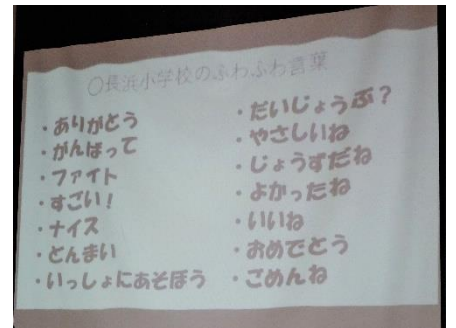 ○長浜小学校のふわふわ言葉
・ありがとう
・がんばって
・ファイト
・すごい！
・ナイス
・どんまい
・いっしょにあそぼう
・だいじょうぶ？
・やさしいね
・じょうずだね
・よかったね
・いいね
・おめでとう
・ごめんね